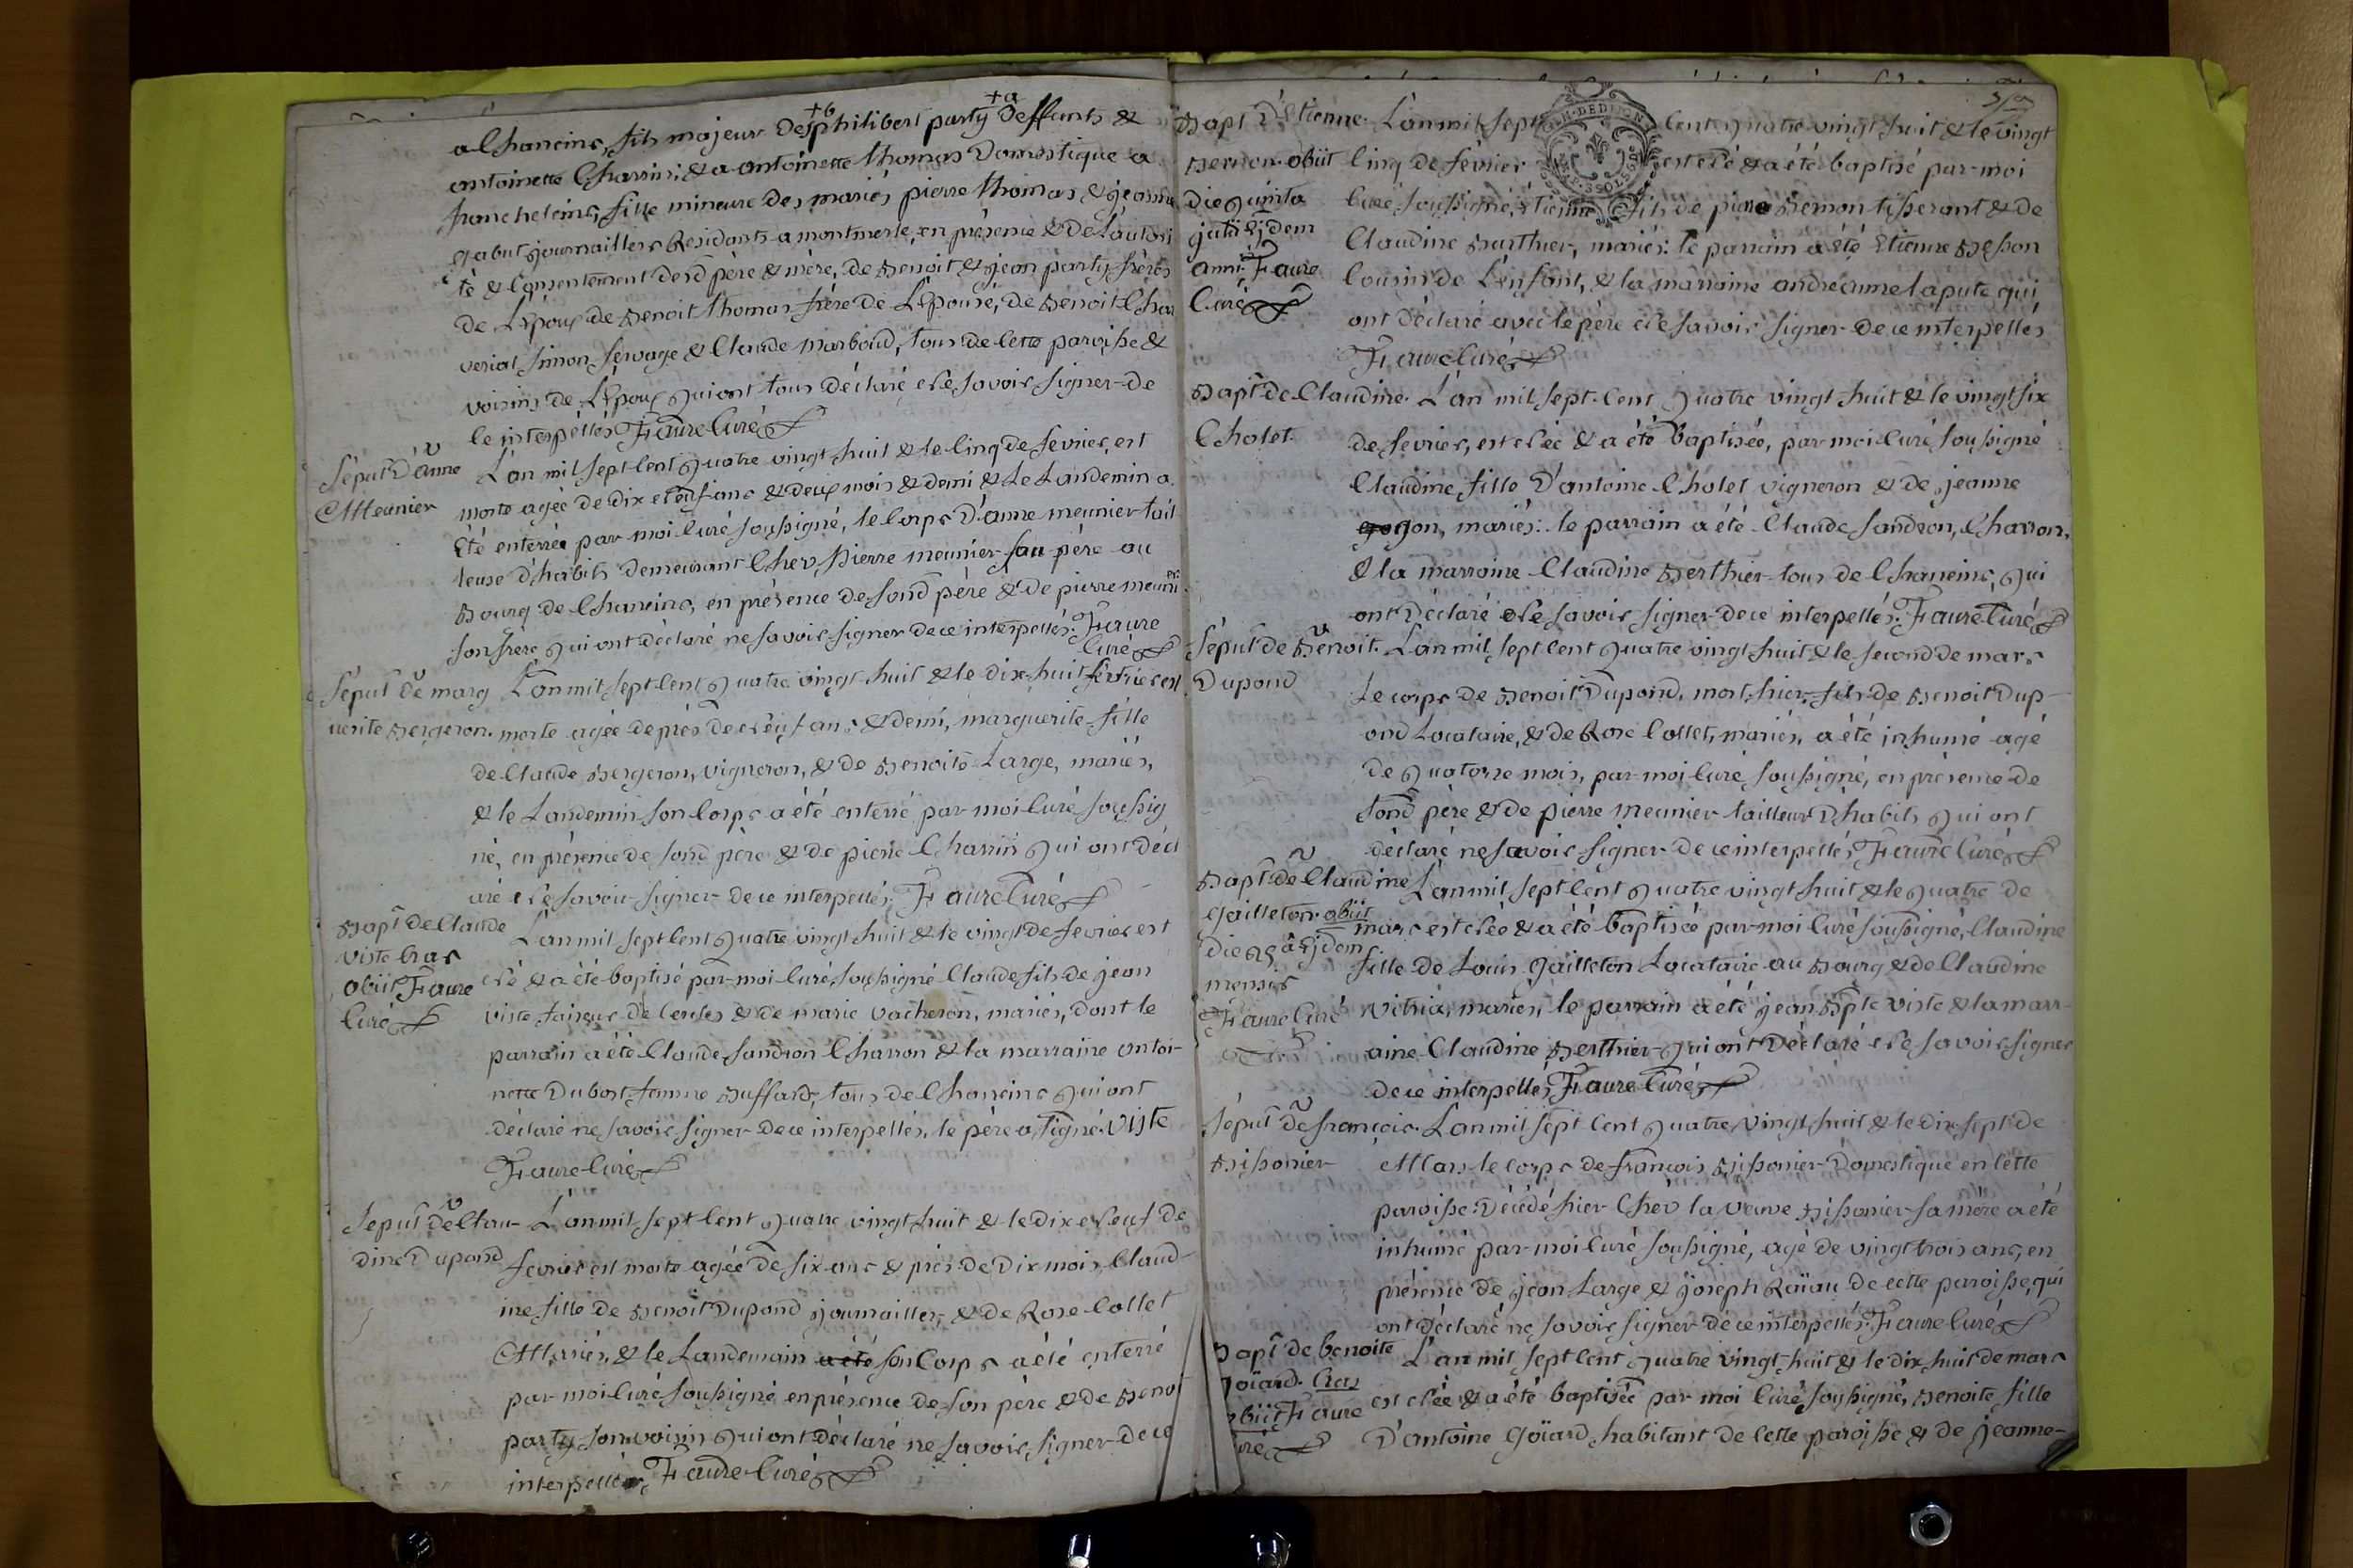 a Chaneins, fils majeur Des philibert party Deffunts &
+b +a
antoinette Charrin; & a antoinette thomas Domestique a
francheleins, fille mineure Des mariés pierre thomas & jeanne
gabut journailliers Residants a montmerle, en présence & De L'autori
té & Consentement desd père & mère, de Benoit & jean party frères
de L'époux de Benoit thomas frère De L'épouse, de Benoit Char
veriat simon sewage & Claude Marboud, tous de cette paroisse &
voisins de L'époux qui ont tous déclaré ne savoir signer de
ce interpellés Faure Curé
Sépult D'anne
Meunier
L'an mil sept cent quatre vingt huit & le cinq de fevrier, est
morte agée de dix neuf ans & deux mois & demi & Le Landemin a
été enterrée par moi curé soussigné, le corps D'anne meunier tail
leuse D'habits demeurant Chez pierre meunier son père au
Bourg de Chaneins, en présence de sond père & de pierre meunier
son frère qui ont déclaré ne savoir signer de ce interpellés. Faure
Curé
Sépult de marg
uerite Bergeron.
L'an mil sept cent quatre vingt huit & le dix huit fevrier est
morte agée de près de neuf ans & demi, marguerite fille
de Claude Bergeron, vigneron, & de Benoite Large, mariés,
& le Landemin son corps a été enterré par moi curé soussig
né, en présence de sond père & de pierre Charrin qui ont décl
aré ne savoir signer de ce interpellés. Faure Curé
Bapt de Claude
viste bras
obiit Faure
Curé
L'an mil sept cent quatre vingt huit & le vingt de fevrier est
né & a été baptisé par moi curé soussigné Claude fils de jean
viste faiseur de cercles & de marie vacheron, mariés, dont le
parrain a été Claude sandron Charron & la marraine antoi-
nette Dubost femme Buffard, tous de Chaneins qui ont
déclaré ne savoir signer de ce interpellés, le père a signé. viste
Faure Curé
Sepult de Clau-
dine Dupond
L'an mil sept cent quatre vingt huit & le dix neuf de
fevrier est morte agée de six ans & près de Dix mois, Claud-
ine fille de Benoit Dupond journaillier, & de Rose Collet
Mariés, & le Landemain a été son Corps a été enterré
par moi curé soussigné en présence de son père & de Benoi
party son voisin qui ont déclaré ne savoir signer de ce
interpellés, Faure Curé
Bapt D'Etienne
Bernon. obiit
die quinta
julii ejdem
anni. Faure
Curé
L'an mil sept cent quatre vingt huit & le vingt
cinq de fevrier est né & a été baptisé par moi
curé soussigné, étienne fils de pierre Bernon tisserant & de
Claudine Barthier, mariés: le parrain a été Etienne Besson
cousin de L'enfant, & la marraine andréanne lapute qui
ont déclaré avec le père ne savoir signer de ce interpellés
Faure Curé
Bapt de Claudine
Cholet.
L'an mil sept cent quatre vingt huit & le vingt six
de fevrier, est née & a été baptisée, par moi curé soussigné
Claudine, fille D'antoine Cholet vigneron & de jeanne
gogon, mariés: le parrain a été Claude sandron, Charron,
& la marraine Claudine Berthier tous de Chaneins, qui
ont déclaré ne savoir signer de ce interpellés. Faure Curé
Sépult de Benoit
Dupond
L'an mil sept cent quatre vingt huit & le second de mars
Le corps de Benoit Dupond, mort hier, fils de Benoit Dup-
ond Locataire, & de Rose Collet, mariés, a été inhumé agé
de quatorze mois, par moi curé soussigné, en présence de
sond père & de pierre Meunier tailleur D'habits qui ont
déclaré ne savoir signer de ce interpellés Faure Curé
Bapt de Claudine
Gailleton. obiit
die 25 a ejdem
mensis
Faure Curé
L'an mil sept cent quatre vingt huit & le quatre de
mars est née & a été baptisée par moi curé soussigné, Claudine
fille de Louis Gailleton Locataire au Bourg & de Claudine
vitriä, mariés, le parrain a été jean Bpte viste & la marr-
aine Claudine Berthier qui ont Déclaré ne savoir signer
de ce interpellés, Faure Curé
Sépult de françois
Bissonier
L'an mil sept cent quatre vingt huit & le dix sept de
Mars le corps de françois Bissonier Domestique en cette
paroisse: Décédé hier Chez la veuve Bissonier sa mère a été
inhumé par moi curé soussigné, agé de vingt trois ans, en
présence de jean Large & joseph Raïau de cette paroisse, qui
ont déclaré ne savoir signer de ce interpellés. Faure Curé
Bapt de benoite
goïard.
obiit Faure
Curé
L'an mil sept cent quatre vingt huit & le dix huit de mars
est née & a été baptisée par moi curé soussigné, Benoite fille
D'antoine goïard habitant de cette paroisse & de jeanne-